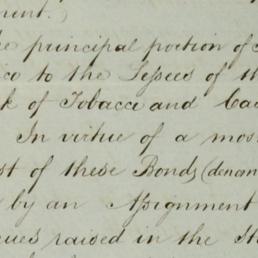 ment.)
he principal portion of
ico to the Lessees of th
k of Tobacco and Ca
In virtue of a mos
st of these Bonds (denom
by an Assignment
ues raised in the St